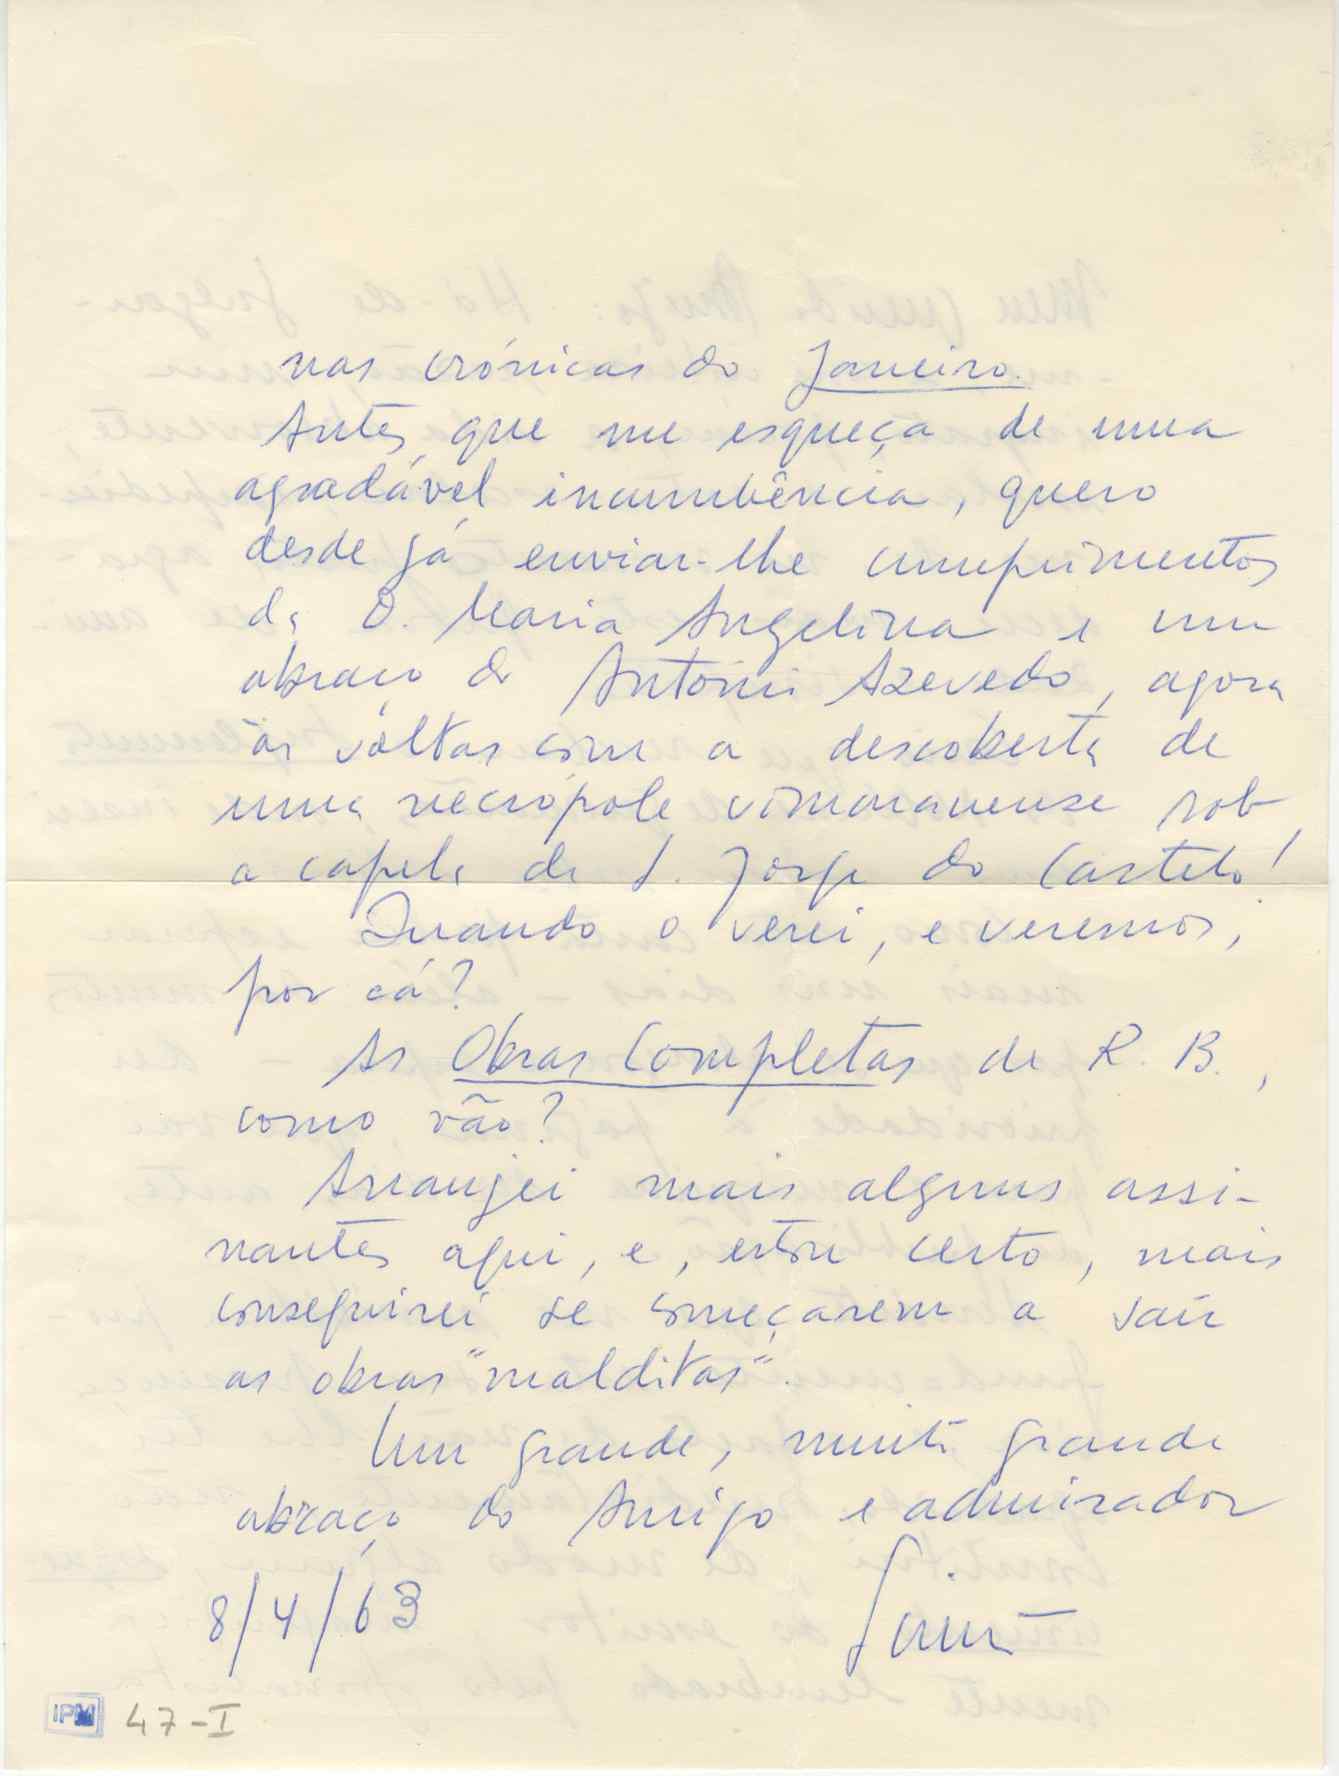 nas crónicas do Janeiro.
Antes que me esqueça de uma
agradável incumbência, quero
desde já enviar-lhe cumprimentos
da D. Maria Angelina e um
abraço do António Azevedo, agora
às voltas com a descoberta de
uma necrópole vimaranense sob
a capela de S. Jorge do Castelo!
Quando o verei, e veremos,
por cá?
As Obras Completas de R. B.,
como vão?
Arranjei mais alguns assi-
nantes aqui, e, estou certo, mais
conseguirei se começarem a sair
as obras "malditas".
Um grande, muito grande
abraço do Amigo e admirador
8/4/63
IPM 47-I